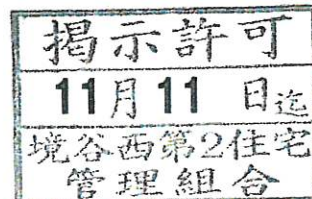 掲示許可
11月11日迄
境谷西第2住宅
管理組合